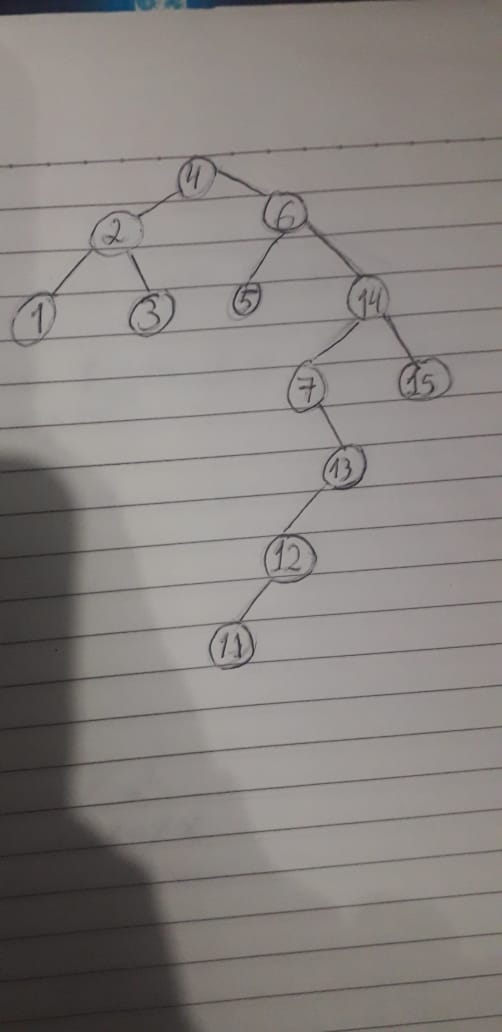 4
2 6
1 3 5 14
7 15
13
12
11